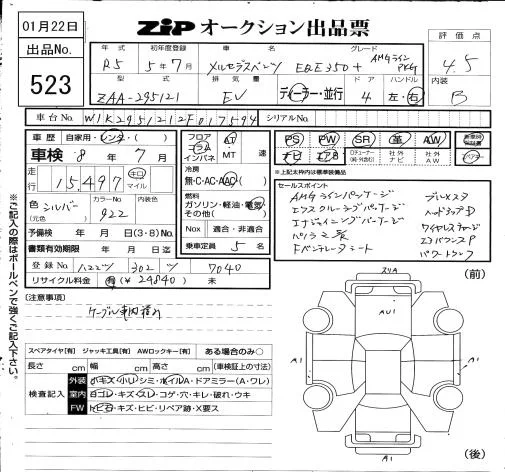 01月22日
ZIP オークション出品票
出品No.
523
評価点
4.5
内装
B
年式 初年度登録 車名 グレード
R5 5年7月 メルセデスベンツ EQE350+ AMGライン PKG
型式 排気量 ドア ハンドル
ZAA-295121 EV ディーラー・並行 4 左・右
車台No. W1K2951212F017594 シリアルNo.
車歴 自家用・レンタ・( )
車検 8年 7月
走行 15,497 キロ マイル
色 シルバー (元色) カラーNo. 922 内装色
予備検 年 月 日 (3・8) No.
書類有効期限 年 月 日迄
登録No. 302 7040
リサイクル料金 有 (¥24840) 未
フロア コラム インパネ AT MT 速
冷房 無・C・AC・AAC
燃料 ガソリン・軽油・電気 その他( )
Nox 適合・非適合
乗車定員 5 名
PS PW SR 革 AW
ナビ エアB 社外ナビ 社外AW
※上記太枠内は標準装備品
セールスポイント
AMGラインパッケージ
エクスクルーシブパッケージ
エナジャイジングパッケージ
パノラマ
Fベンチレーターシート
ヘッドアップD
(前)
注意事項
ケーブル車内積み
スペアタイヤ【有】 ジャッキ工具【有】 AWロックキー【有】 ある場合のみ○
長さ cm 幅 cm 高さ cm (車検証上の寸法)
検査記入
外装 小キズ・小ヘコ・シミ・ホイルA・ドアミラー(A・ワレ)
室内 ヨゴレ・キズ・スレ・コゲ・穴・キレ・破れ・ウキ
FW トビ石・キズ・ヒビ・リペア跡・X要ス
AU1
A1
A1
A1
(後)
※ご記入の際はボールペンで強くご記入下さい。